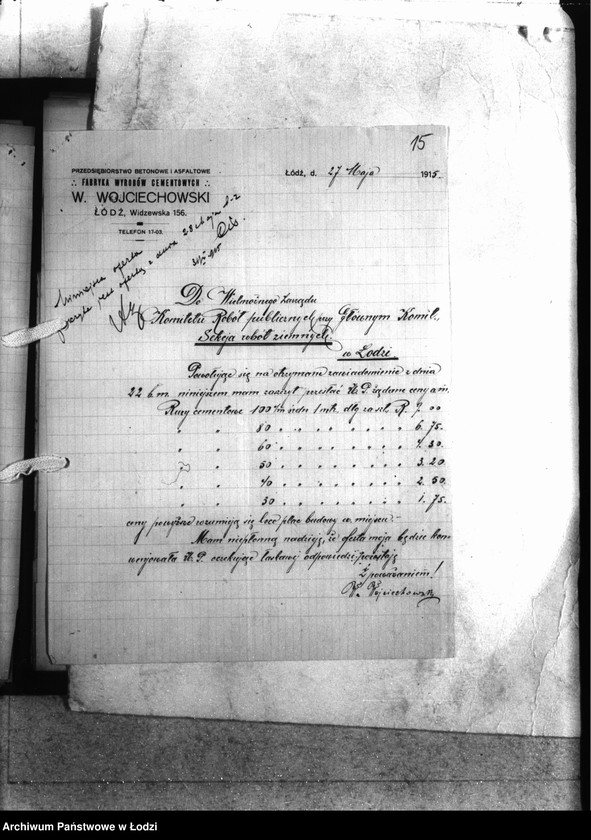 15
PRZEDSIĘBIORSTWO BETONOWE I ASFALTOWE
FABRYKA WYROBÓW CEMENTOWYCH
W. WOJCIECHOWSKI
ŁÓDŹ, Widzewska 156.
TELEFON 17-03.
Łódź, d. 27 Maja 1915.
Niniejsza oferta
z dnia 28 Maja
Do Wielmożnego Zarządu
Komitetu Robót publicznych przy Głównym Komit.,
Sekcja robót ziemnych
w Łodzi
Powołując się na otrzymane zawiadomienie z dnia
22 b.m. niniejszem mam zaszczyt przesłać W.P. żądane ceny a m.
Rury cementowe 100 c/m śrdn. 1 mtr. dłg. za szt. R. 7.00
" " 80 " " " " " " 6.75.
" " 60 " " " " " " 4.50.
" " 50 " " " " " " 3.20
" " 40 " " " " " " 2.50.
" " 30 " " " " " " 1.75.
ceny powyższe rozumieją się loco plac budowy w miejscu.
Mam niepłonną nadzieję, że oferta moja będzie kon
wenjowała W.P. oczekując łaskawej odpowiedzi pozostaję
Z poważaniem!
W. Wojciechowski
Archiwum Państwowe w Łodzi